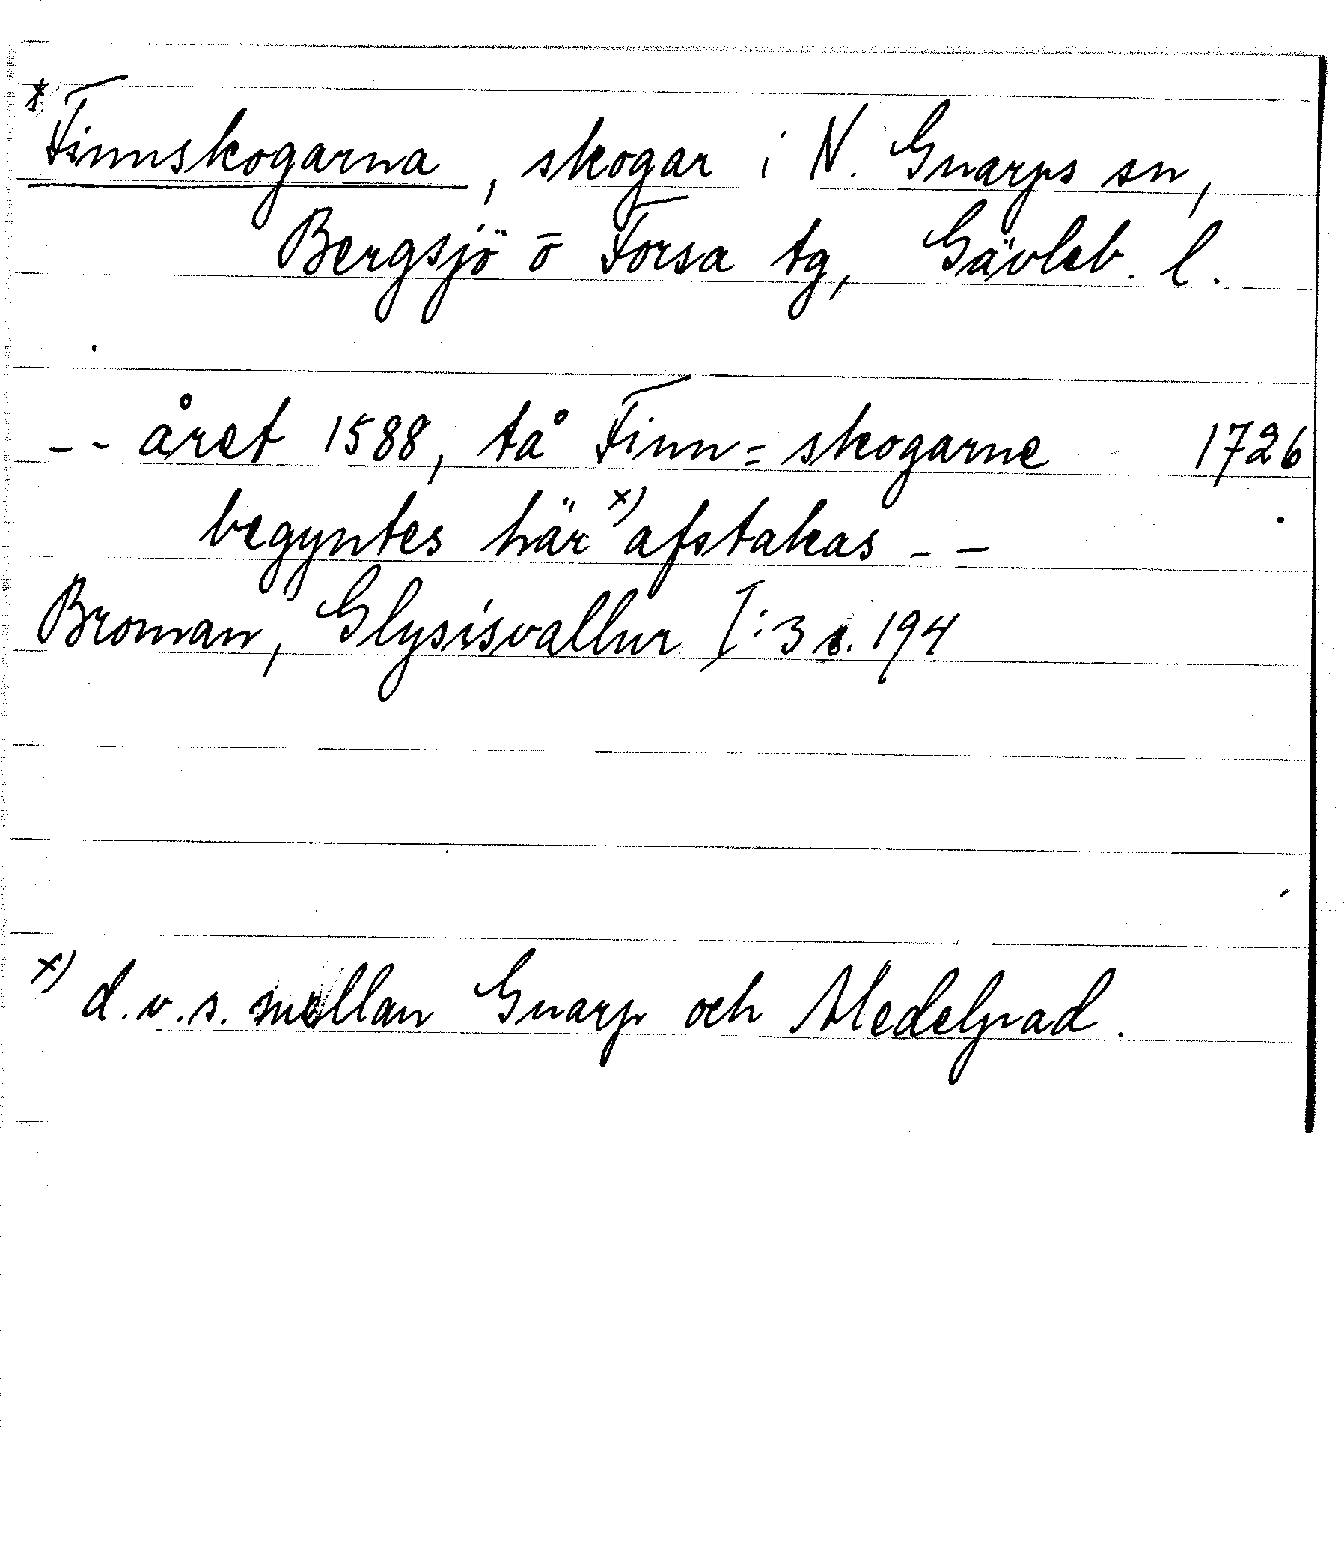 * Finnskogarna, skogar i N. Gnarps sn,
Bergsjö o Forsa tg, Gävleb. l.
-- året 1588, tå Finn= skogarne 1726
begyntes här x) afstakas --
Broman, Glysisvallur I:3 s. 194
x) d.v.s. mellan Gnarp och Medelpad.